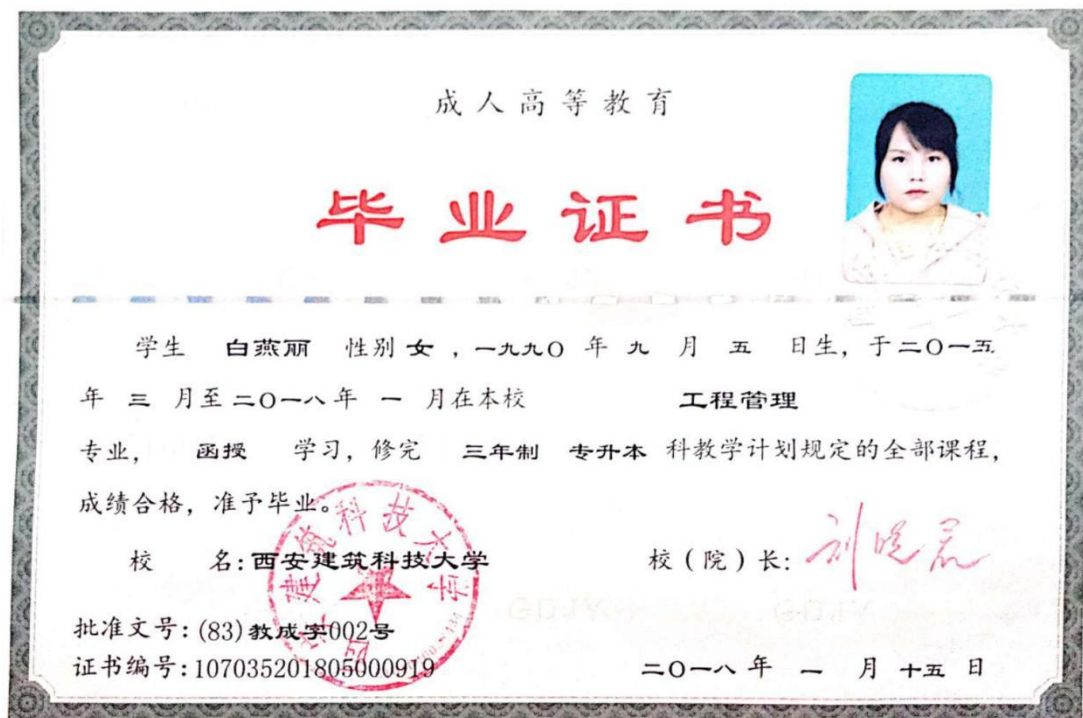 成人高等教育
毕业证书
学生 白燕丽 性别 女 ,一九九〇 年 九 月 五 日生, 于二〇一五
年 三 月至二〇一八年 一 月在本校 工程管理
专业, 函授 学习, 修完 三年制 专升本 科教学计划规定的全部课程,
成绩合格, 准予毕业。
校 名: 西安建筑科技大学 校 ( 院 ) 长: 刘晓君
西安建筑科技大学
批准文号: (83) 教成字002号
证书编号: 107035201805000919 二〇一八 年 一 月 十五 日